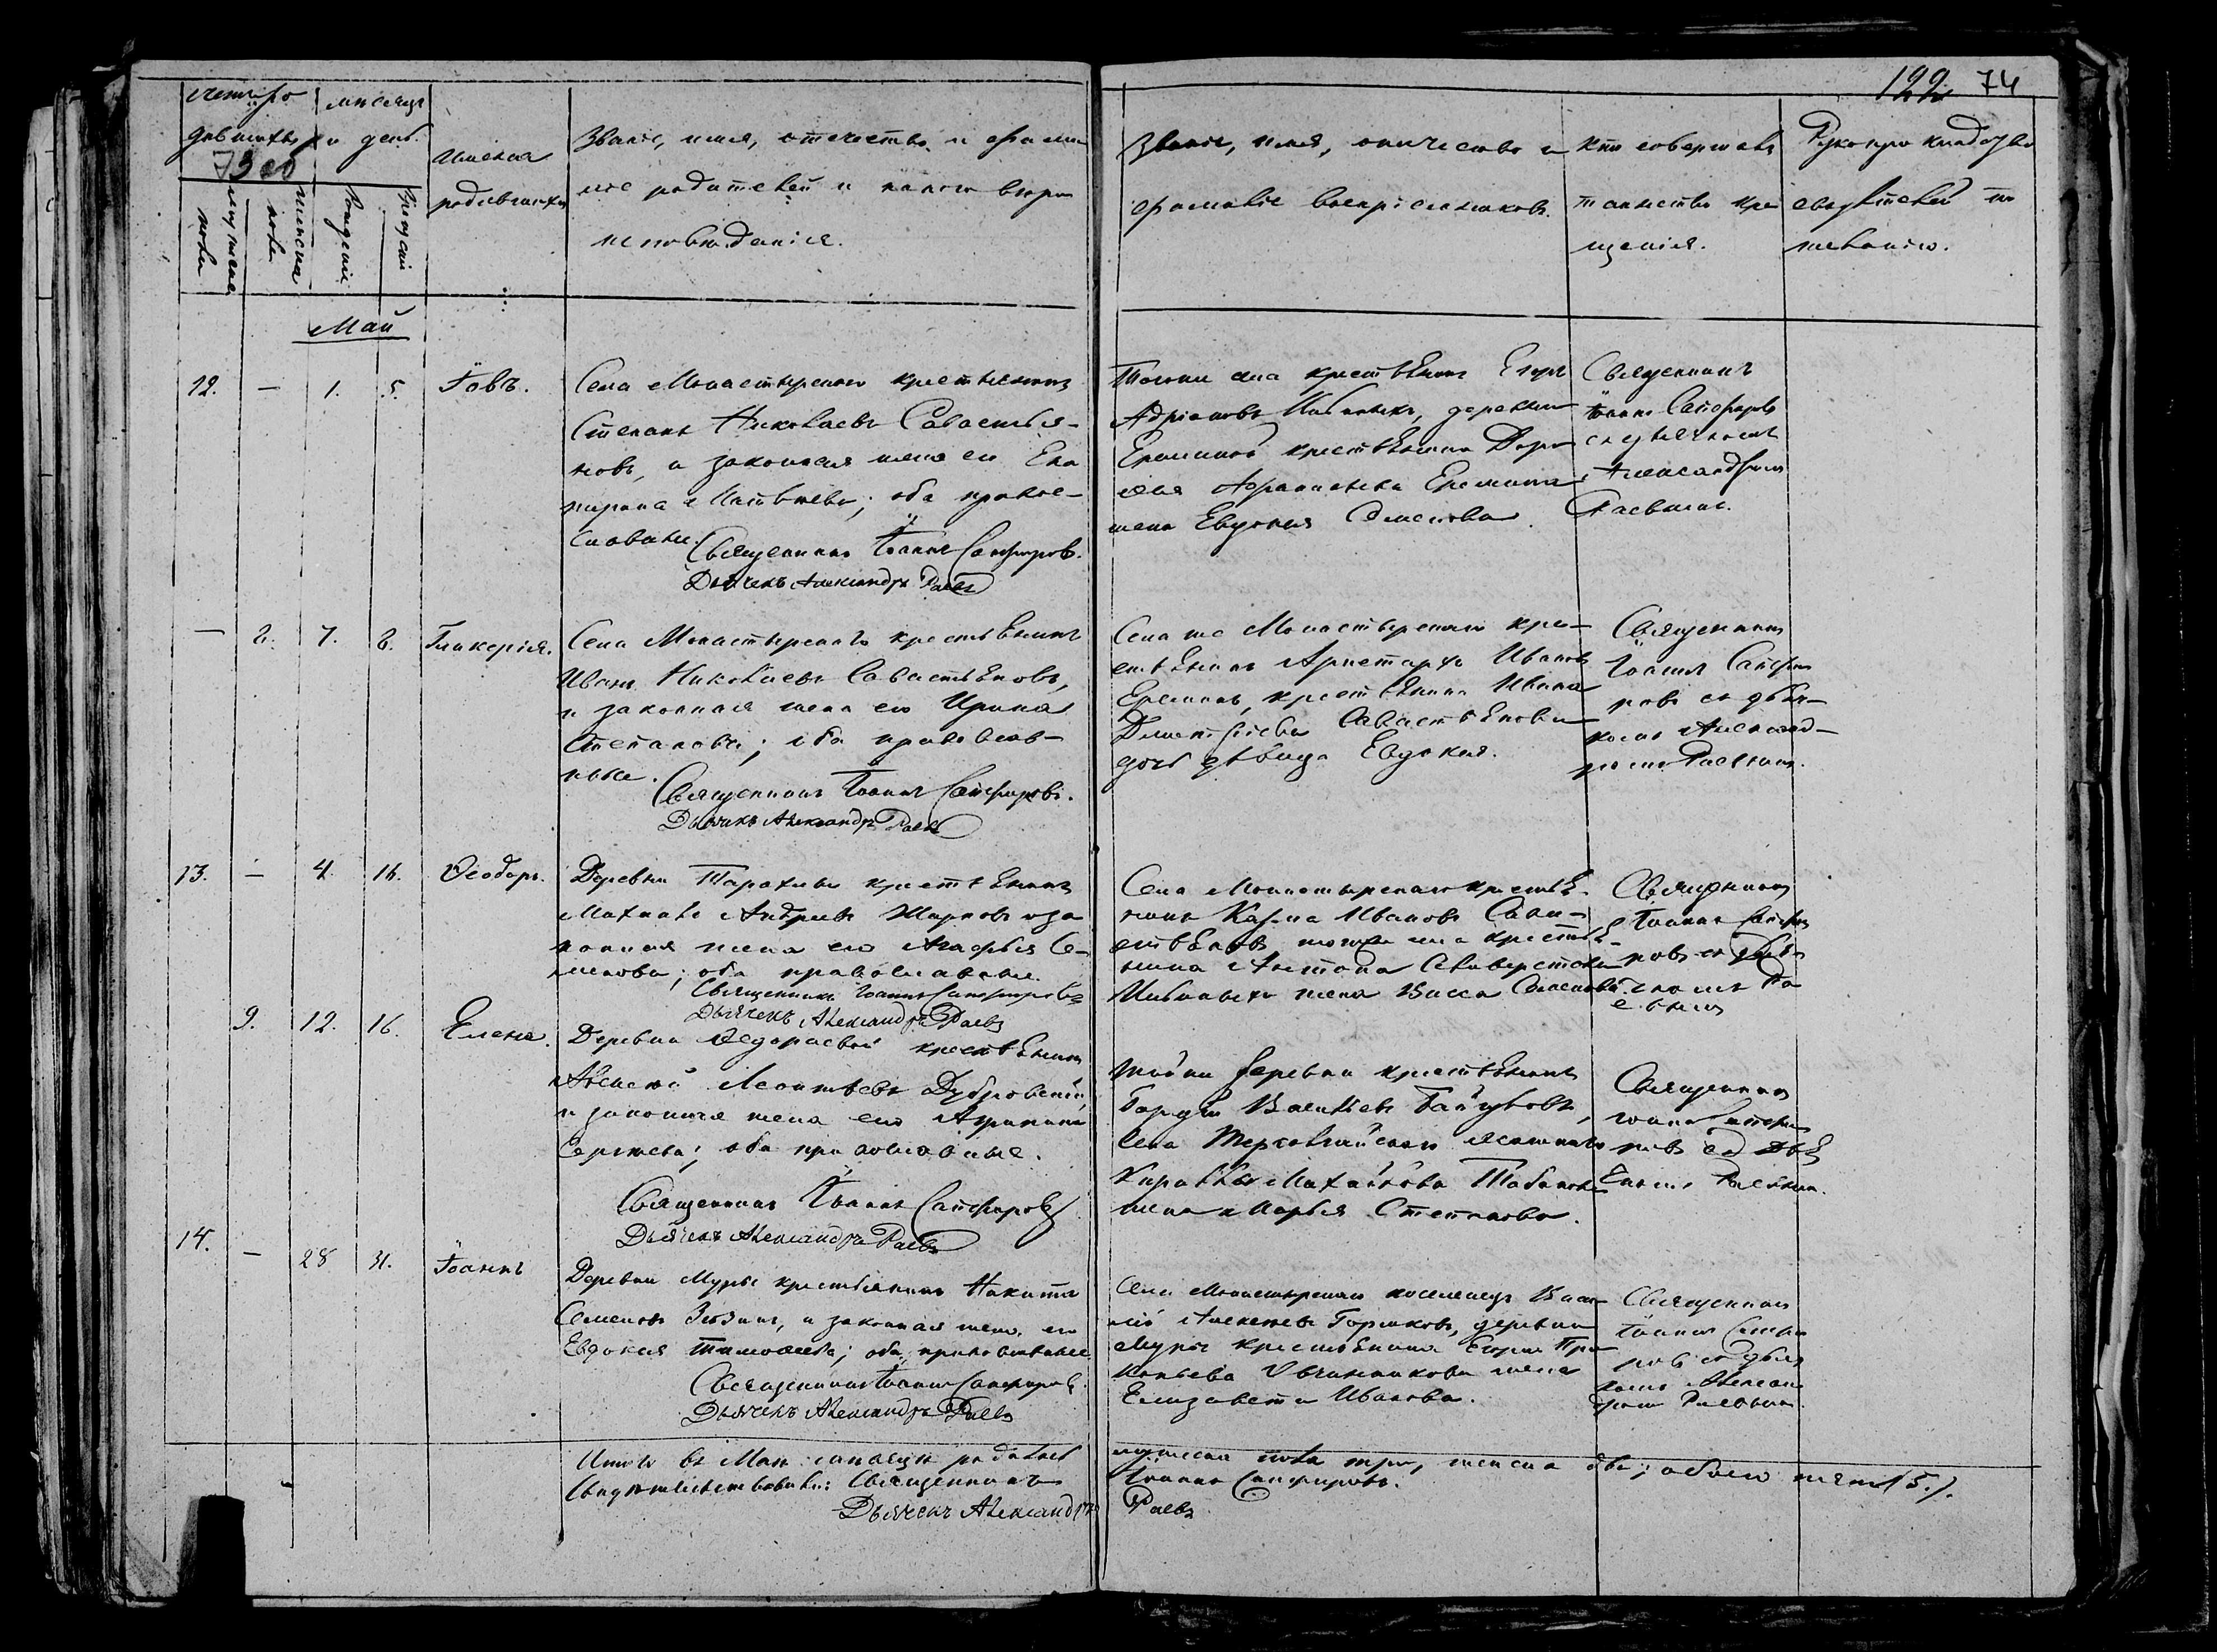 122 74
Счетъ ро
дившихся
Мужеска
пола
Женска
пола
Мѣсяцъ
и день.
Рожденія
Крещенія
Имена
родившихся
Званіе, имя, отечество и фами
ліе родителей и какого вѣро
исповѣданія.
Званіе, имя, отчество и
фамиліе воспріемниковъ.
Кто совершалъ
таинство кре
щенія.
Рукоприкладство
свидѣтелей по
желанію.
Май
12. — 1. 5. Іовъ.
Села Монастырскаго крестьянинъ
Степанъ Николаевъ Савастья-
новъ, и законная жена его Ека
терина Матвѣева; оба право-
славные.
Священникъ Іоаннъ Сапфировъ.
Дьячекъ Александръ Раевъ
Тогоже села крестьянинъ Егоръ
Адріановъ деревни
крестьянина Доро
фея Еремина
жена Евдокія Семенова.
Священникъ
Іоаннъ Сапфировъ
съ дьячкомъ
Александромъ
Раевымъ.
— 8. 7. 8. Гликерія.
Села Монастырскаго крестьянинъ
Иванъ Николаевъ Савастьяновъ,
и законная жена его Ирина
Степанова; оба православ-
ные.
Священникъ Іоаннъ Сапфировъ.
Дьячекъ Александръ Раевъ
Села же Монастырскаго кре-
стьянинъ Аристархъ Ивановъ
Ереминъ, крестьянина Ивана
Дементьева Савастьянова
дочь дѣвица Евдокія.
Священникъ
Іоаннъ Сапфи
ровъ съ дьяч-
комъ Александ-
ромъ Раевымъ.
13. — 4. 16. Ѳеодоръ.
Деревни крестьянинъ
Михаилъ Андреевъ Жарковъ и за
конная жена его Агафья Се-
менова; оба православные.
Священникъ Іоаннъ Сапфировъ
Дьячекъ Александръ Раевъ
Села Монастырскаго крестья-
нинъ Козма Ивановъ Сава-
стьяновъ, тогоже села крестья-
нина Антона Селиверстова
жена Васса Семенова.
Священникъ
Іоаннъ Сапфи
ровъ съ дья
чкомъ Ра
евымъ
9. 12. 16. Елена.
Деревни Ѳедораевой крестьянинъ
Алексѣй Леонтьевъ Дубровскій,
и законная жена его
Сергѣева; оба православные.
Священникъ Іоаннъ Сапфировъ
Дьячекъ Александръ Раевъ
Тойже деревни крестьянинъ
Гордѣй Васильевъ
Села ясашнаго
Кирилы Михайлова
жена Марья Степанова.
Священникъ
Іоаннъ Сапфи
ровъ съ Дья
Раевымъ.
14. — 28 31. Іоаннъ
Деревни Муры крестьянинъ Никита
Семеновъ Зюзинъ, и законная жена его
Евдокія Тимофеева; оба православные
Священникъ Іоаннъ Сапфировъ.
Дьячекъ Александръ Раевъ
Села Монастырскаго поселенецъ Васи
лій Алексѣевъ Горшковъ, деревни
Муры крестьянина Егора Про
копьева Овчинникова жена
Елизавета Иванова.
Священникъ
Іоаннъ Сапфи
ровъ съ дьяч
комъ Алексан
дромъ Раевымъ.
Итого въ Маѣ мѣсяцѣ родилось мужеска пола три, женска два; обоего пять (5.).
Свидѣтельствовали: Священникъ Іоаннъ Сапфировъ.
Дьячекъ Александръ Раевъ